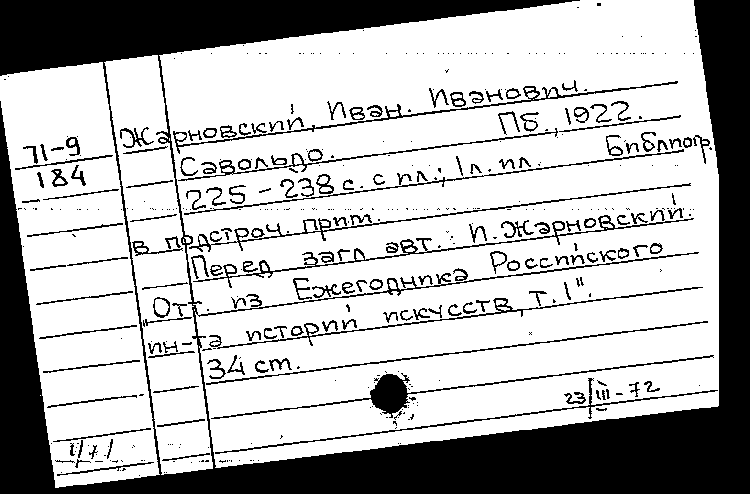 71-9
184
Жарновский, Иван. Иванович.
Савольдо. Пб., 1922.
225-238 с. с ил.; 1 л. ил. Библиогр.
в подстроч. прим.
Перед загл авт.: И. Жарновский.
"Отт. из Ежегодника Российского
ин-та истории искусств, т. 1".
34 cm.
23/III-72